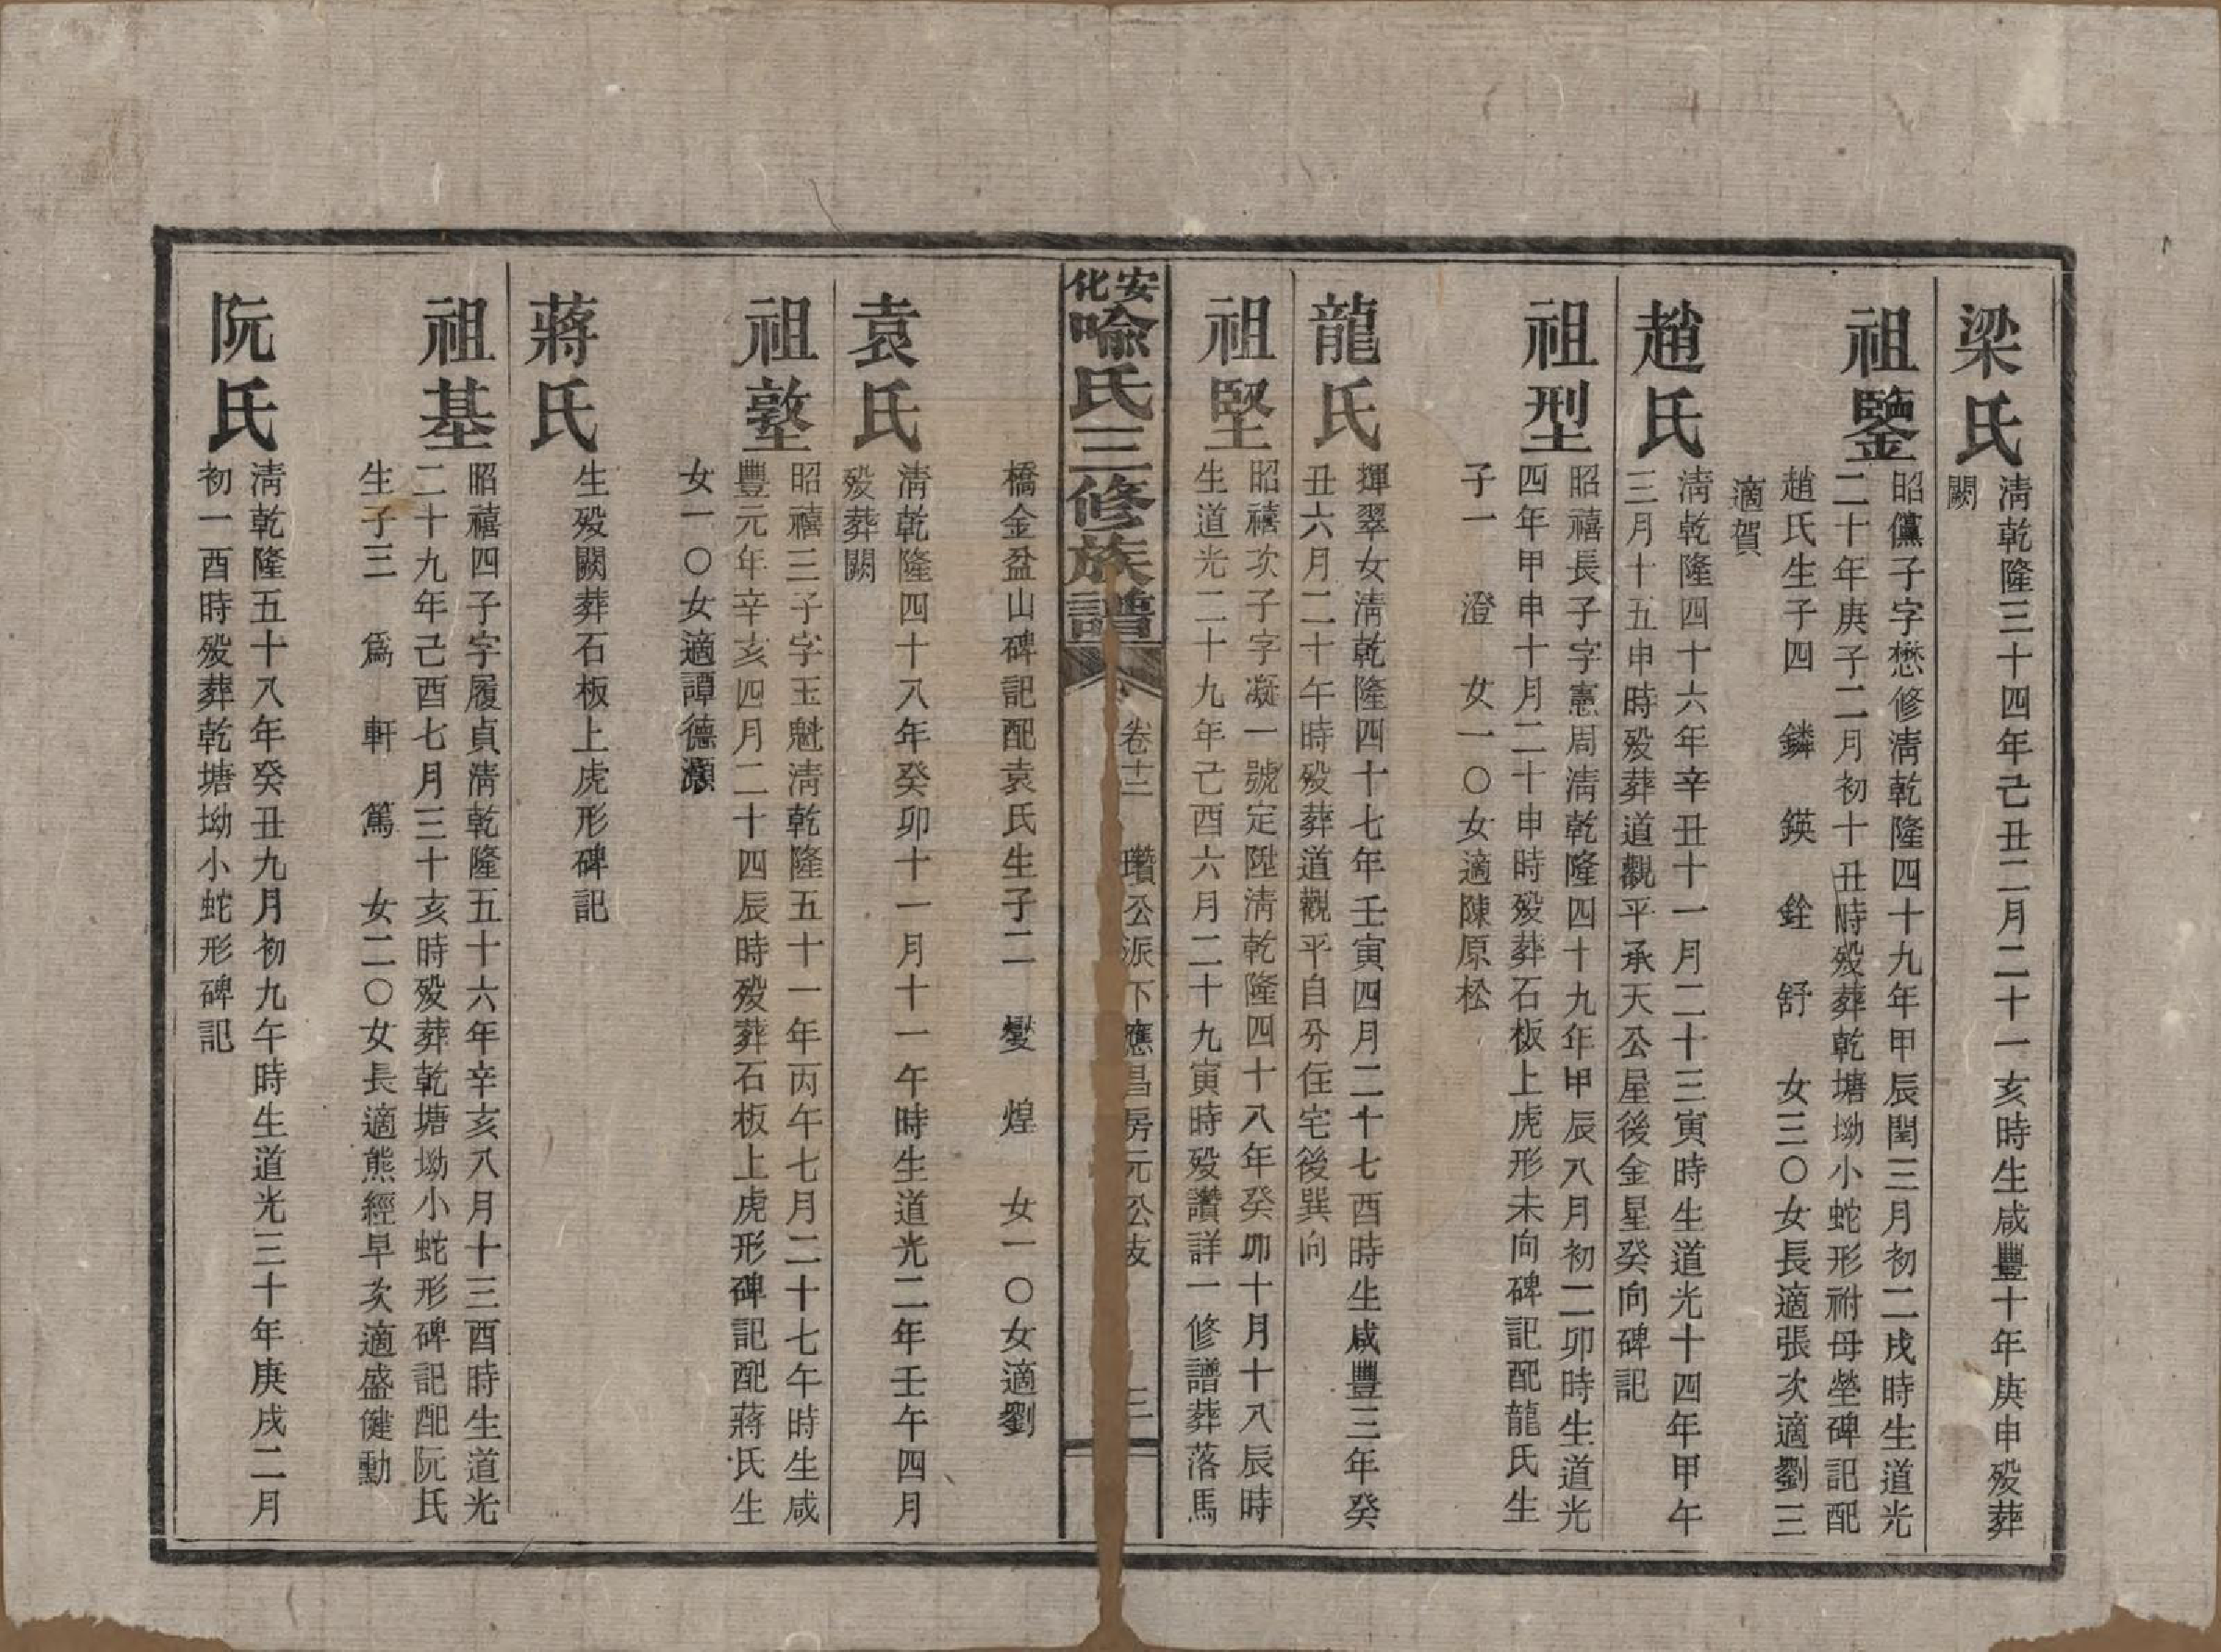 梁氏
清乾隆三十四年己丑二月二十一亥時生咸豐十年庚申殁葬
闕
祖鑒
昭儻子字懋修清乾隆四十九年甲辰閏三月初二戌時生道光
二十年庚子二月初十丑時殁葬乾塘坳小蛇形祔母塋碑記配
趙氏生子四　鏻　鍈　銓　舒　女三〇女長適張次適劉三
適賀
趙氏
清乾隆四十六年辛丑十一月二十三寅時生道光十四年甲午
三月十五申時殁葬道觀平承天公屋後金星癸向碑記
祖型
昭禧長子字憲周清乾隆四十九年甲辰八月初二卯時生道光
四年甲申十月二十申時殁葬石板上虎形未向碑記配龍氏生
子一　澄　女一〇女適陳原松
龍氏
揮翠女清乾隆四十七年壬寅四月二十七酉時生咸豐三年癸
丑六月二十午時殁葬道觀平自分住宅後巽向
祖堅
昭禧次子字凝一號定陞清乾隆四十八年癸卯十月十八辰時
生道光二十九年己酉六月二十九寅時殁讚詳一修譜葬落馬
安化喻氏三修族譜　卷十二　瓚公派下應昌房元公支　三
橋金盆山碑記配袁氏生子二　燮　煌　女一〇女適劉
袁氏
清乾隆四十八年癸卯十一月十一午時生道光二年壬午四月
殁葬闕
祖墪
昭禧三子字玉魁清乾隆五十一年丙午七月二十七午時生咸
豐元年辛亥四月二十四辰時殁葬石板上虎形碑記配蔣氏生
女一〇女適譚德灝
蔣氏
生殁闕葬石板上虎形碑記
祖基
昭禧四子字履貞清乾隆五十六年辛亥八月十三酉時生道光
二十九年己酉七月三十亥時殁葬乾塘坳小蛇形碑記配阮氏
生子三　爲　軒　篤　女二〇女長適熊經早次適盛健勳
阮氏
清乾隆五十八年癸丑九月初九午時生道光三十年庚戌二月
初一酉時殁葬乾塘坳小蛇形碑記